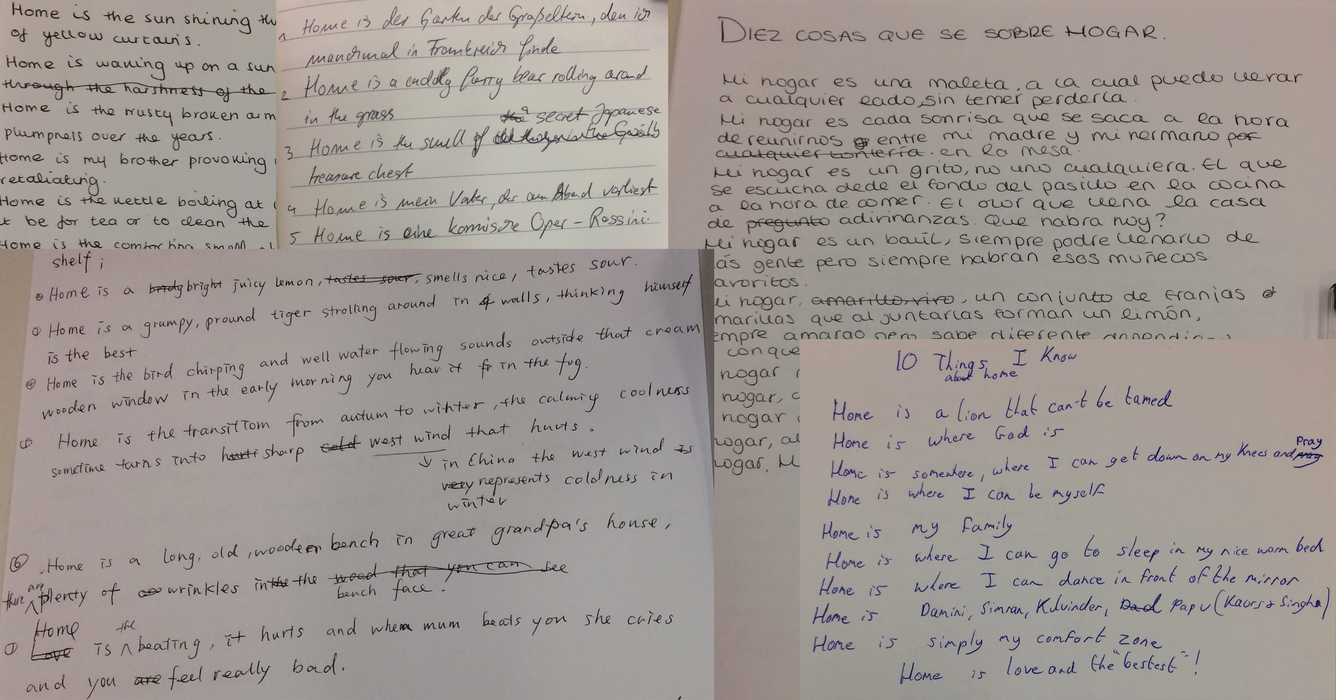 Home is the sun shining
of yellow curtains.
Home is waking up on a sun
through the harshness of the
Home is the rusty broken arm
plumpness over the years.
Home is my brother provoking
retaliating.
Home is the kettle boiling at
t be for tea or to clean the
Home is the comforting smell
1 Home is der Garten der Großeltern, den ich
manchmal in Frankreich finde
2 Home is a cuddly furry bear rolling around
in the grass
the a secret Japanese
3 Home is the smell of
treasure chest
4 Home is mein Vater, der am Abend vorliest
5 Home is eine komische Oper - Rossini
DIEZ COSAS QUE SE SOBRE HOGAR.
Mi hogar es una maleta, a la cual puedo llevar
a cualquier lado, sin temer perderla.
Mi hogar es cada sonrisa que se saca a la hora
de reunirnos entre mi madre y mi hermano por
cualquier tontería. en la mesa.
Mi hogar es un grito, no uno cualquiera. El que
se escucha dede el fondo del pasillo en la cocina
a la hora de comer. El olor que llena la casa
de pregunto adivinanzas. Que habra hoy?
Mi hogar es un baúl, siempre podre llenarlo de
ás gente pero siempre habran esos muñecos
avoritos.
Mi hogar, amarillo vivo, un conjunto de franjas
marillas que al juntarlas forman un limón,
empre amargo pero sabe diferente
con que
hogar
hogar,
hogar
hogar, al
ogar, M
shelf;
Home is a bright juicy lemon, tastes sour, smells nice, tastes sour.
Home is a grumpy, pround tiger strolling around in 4 walls, thinking himself
is the best
Home is the bird chirping and well water flowing sounds outside that cream
wooden window in the early morning you hear it in the fog.
Home is the transittion from autum to winter, the calming coolness
sometime turns into sharp cold west wind that hurts.
↓ in China the west wind is
very represents coldness in
winter
⑥ Home is a long, old, wooden bench in great grandpa's house,
there are plenty of wrinkles in the the wood that you can see
bench face.
⑦ Home Love is the beating, it hurts and when mum beats you she cries
and you are feel really bad.
10 Things I Know
about home
Home is a lion that can't be tamed
Home is where God is
Home is somewhere, where I can get down on my knees and pray
Home is where I can be myself
Home is my family
Home is where I can go to sleep in my nice warm bed
Home is where I can dance in front of the mirror
Home is Damini, Simran, Kulvinder, Dad Papu (Kaurs & Singhs)
Home is simply my comfort zone
Home is love and the "bestest"!